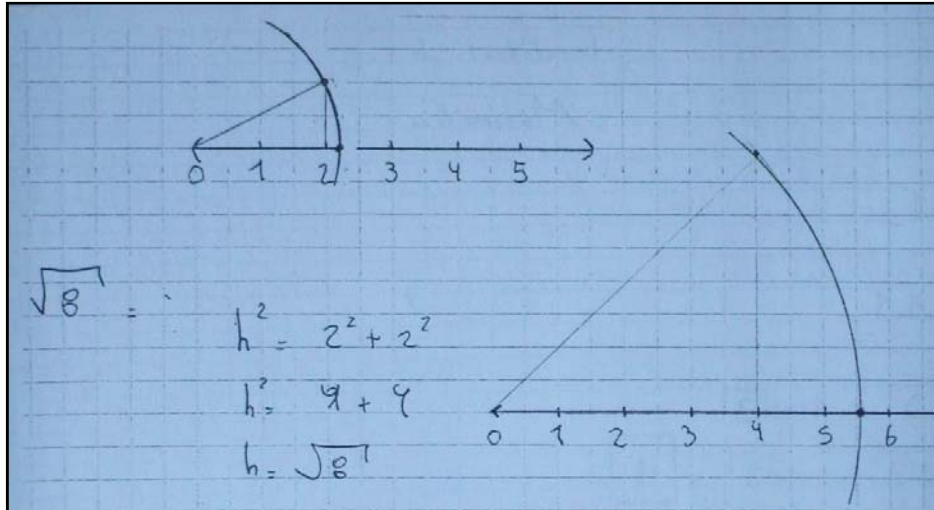 0 1 2 3 4 5
√8 =
h² = 2² + 2²
h² = 4 + 4
h = √8
0 1 2 3 4 5 6